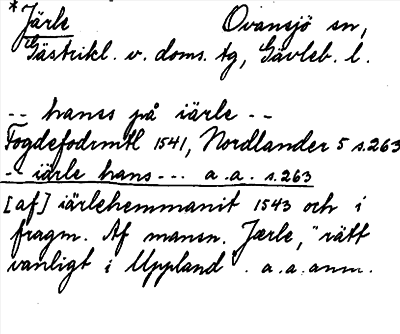 * Järle Ovansjö sn,
Gästrikl. v. doms. tg, Gävleb. l.
-- hanss på iärle --
Fogdefodrmtl 1541, Nordlander 5 s.263
-- iärle hans --- a.a. s.263
[af] iärlehemmanit 1543 och i
fragm. Af mansn. Jærle, "rätt
vanligt i Uppland. a.a. anm.